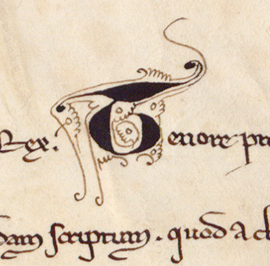 Rex. Tenore pr
dam scriptum. quod a cl